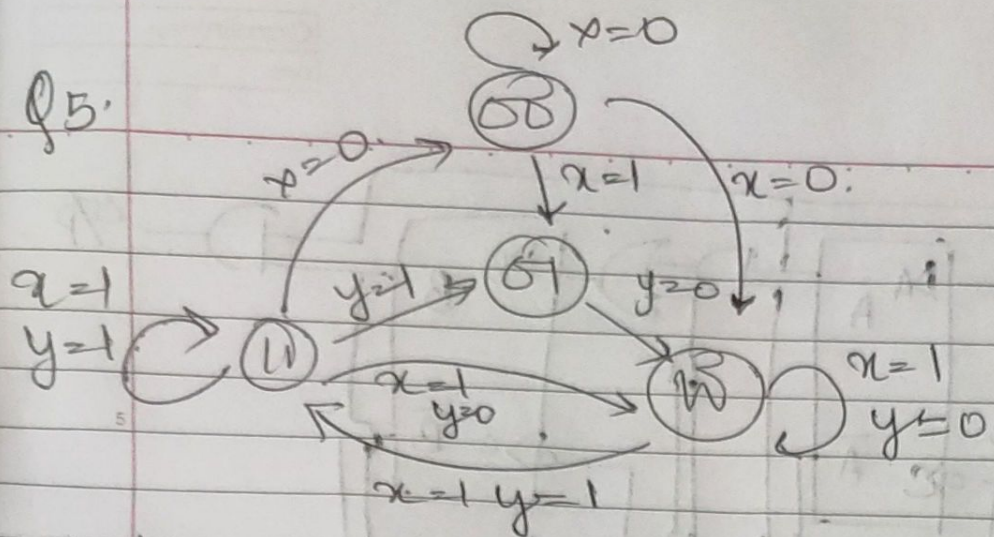 x=0
Q5.
00
x=0
x=1
x=0
01
y=1
y=0
x=1
y=1
11
x=1
y=0
10
x=1
y=0
x=1 y=1